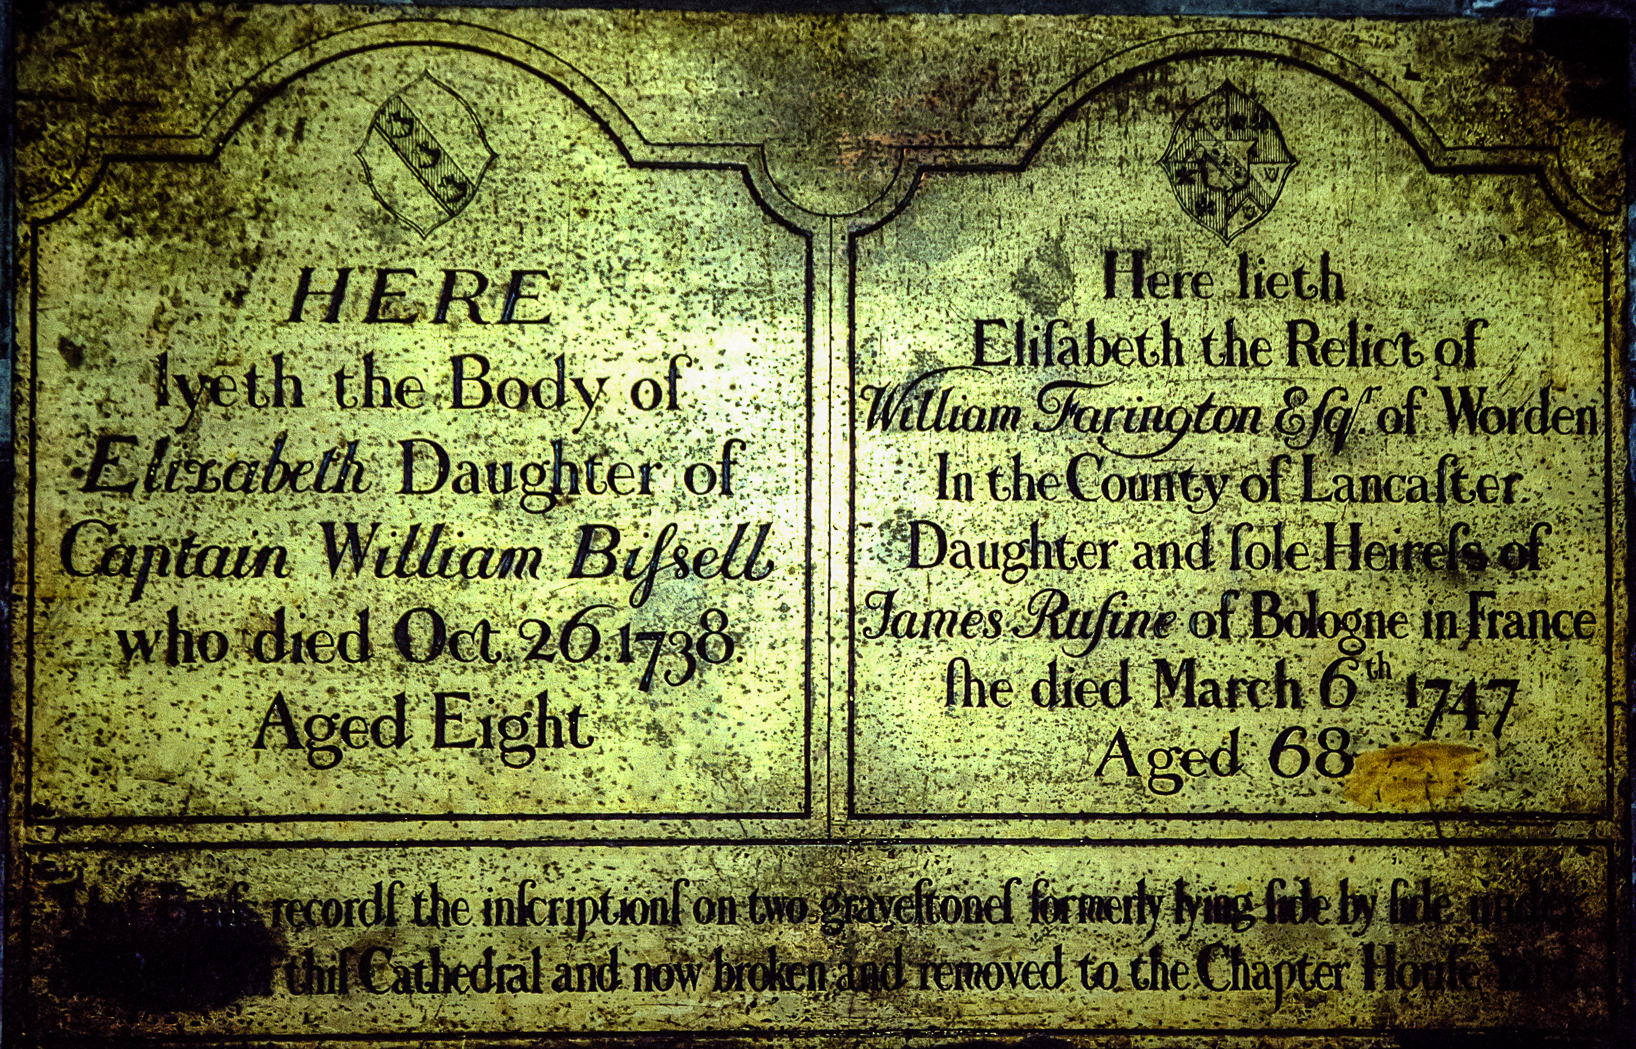 HERE
lyeth the Body of
Elizabeth Daughter of
Captain William Biſsell
who died Oct. 26. 1738.
Aged Eight
Here lieth
Eliſabeth the Relict of
William Farington Eſqr. of Worden
In the County of Lancaſter.
Daughter and ſole Heireſs of
James Ruſine of Bologne in France
ſhe died March 6th 1747
Aged 68
recordſ the inſcriptionſ on two graveſtoneſ formerly lying ſide by ſide under
thiſ Cathedral and now broken and removed to the Chapter Houſe